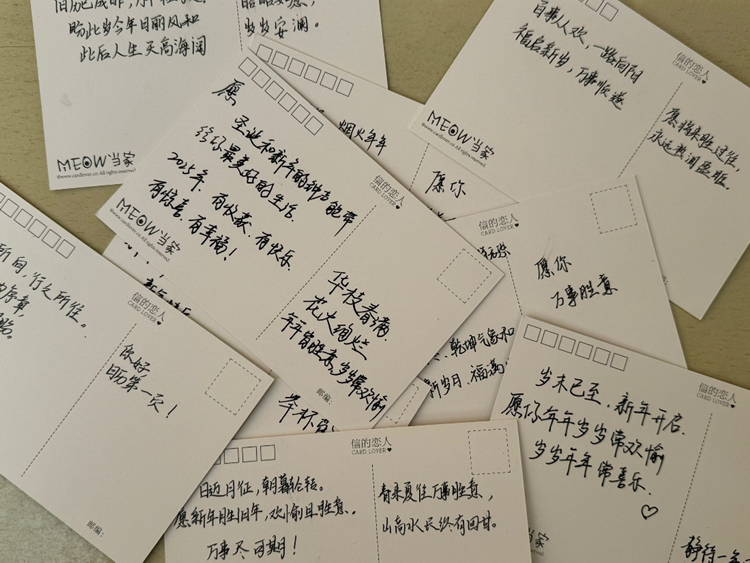 盼此岁今年日丽风和
此后人生天高海阔
岁岁安澜。
MEOW当家
©www.cardlover.cn All rights reserved
百事从欢，一路向阳
福启新岁，万事顺遂
信的恋人
CARD LOVER
愿将来胜过往，
永远热泪盈眶。
烟火年年
愿你
愿
圣诞和新年的钟声能带
给你最美好的生活。
2025年，有收获、有快乐
有惊喜、有幸福！
MEOW当家
©www.cardlover.cn All rights reserved
信的恋人
CARD LOVER
华枝春满
灯火绚烂
年年皆胜意，岁岁常欢愉
邮编：
信的恋人
CARD LOVER
愿你
万事胜意
乾坤气象和
新岁日 福满
举杯
所向，行之所往。
信的恋人
CARD LOVER
你好
日历第一页！
邮编：
信的恋人
CARD LOVER
日迈月征，朝暮轮转。
愿新年胜旧年，欢愉且胜意。
万事尽可期！
春来夏往万事胜意，
山高水长终有回甘。
信的恋人
CARD LOVER
岁末已至，新年开启
愿你年年岁岁常欢愉
岁岁年年常喜乐
当家
静待一